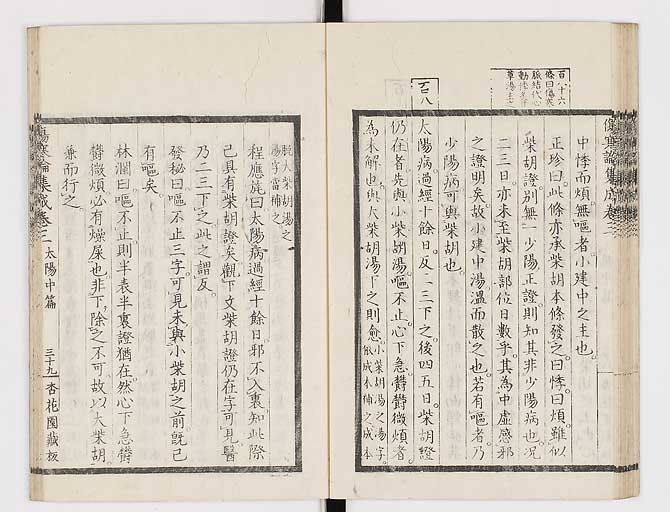 百八十六
條曰傷寒
脈結代心
動悸
中悸而煩無嘔者小建中之主也
正珍曰此條亦承柴胡本條發之曰悸曰煩雖似
柴胡證別無一少陽正證則知其非少陽病也況
二三日亦未至柴胡部位日數乎其為中虛感邪
之證明矣故小建中湯溫而散之也若有嘔者乃
少陽病可與柴胡也
百八
太陽病過經十餘日反二三下之後四五日柴胡證
仍在者先與小柴胡湯嘔不止心下急鬱鬱微煩者
為未解也與大柴胡湯下之則愈 小柴胡之湯字
散成本補之成本
脫大柴胡湯之
湯字當補之
程應旄曰太陽病過經十餘日邪不入裏知此際
已具有柴胡證矣觀下文柴胡證仍在字可見醫
乃二三下之此之謂反
發秘曰嘔不止三字可見未與小柴胡之前既已
有嘔矣
林瀾曰嘔不止則半表半裏證猶在然心下急鬱
鬱微煩必有燥屎也非下除之不可故以大柴胡
兼而行之
傷寒論集成卷三 太陽中篇 三十九 杏花園藏板